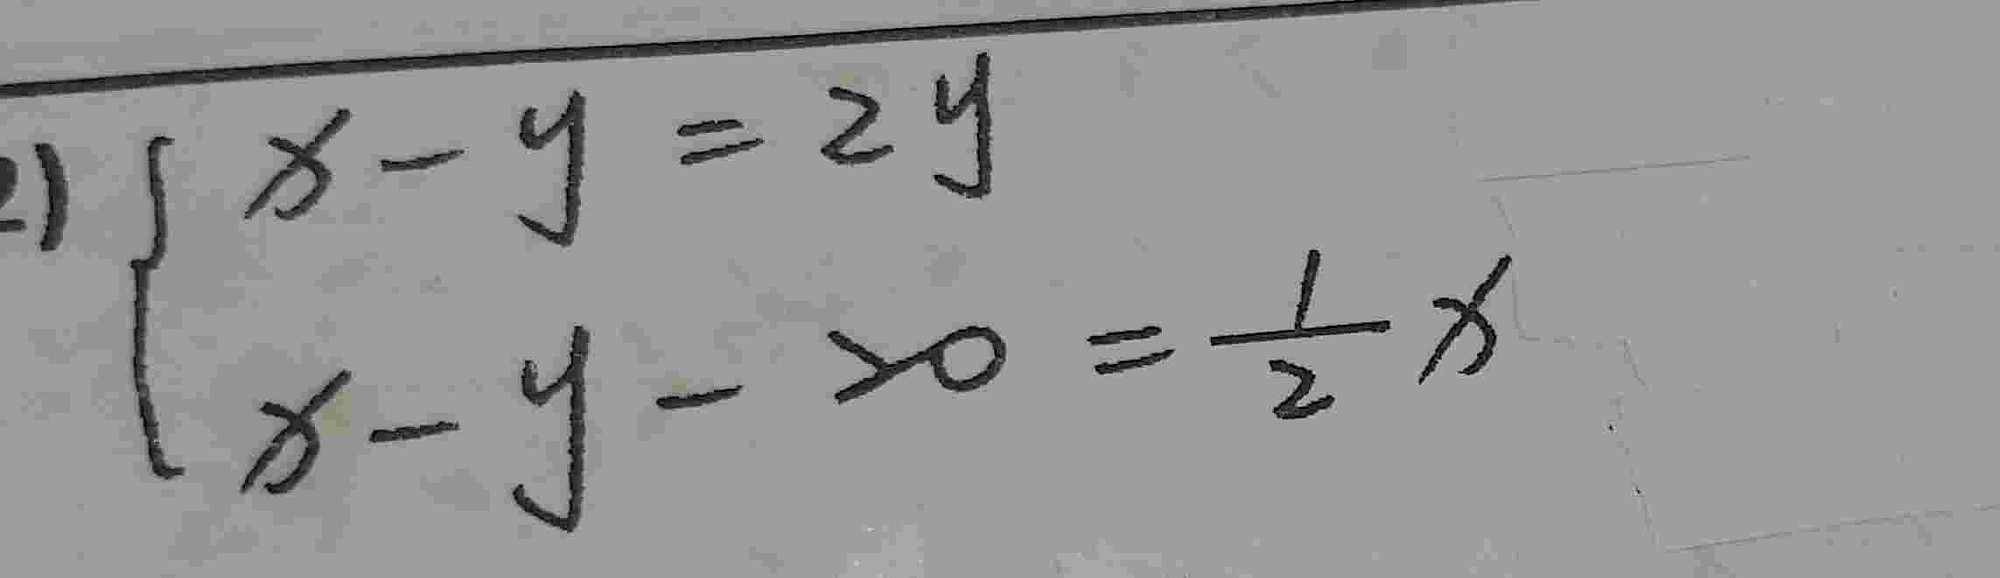 2) { x - y = 2y
x - y - 20 = 1/2 x